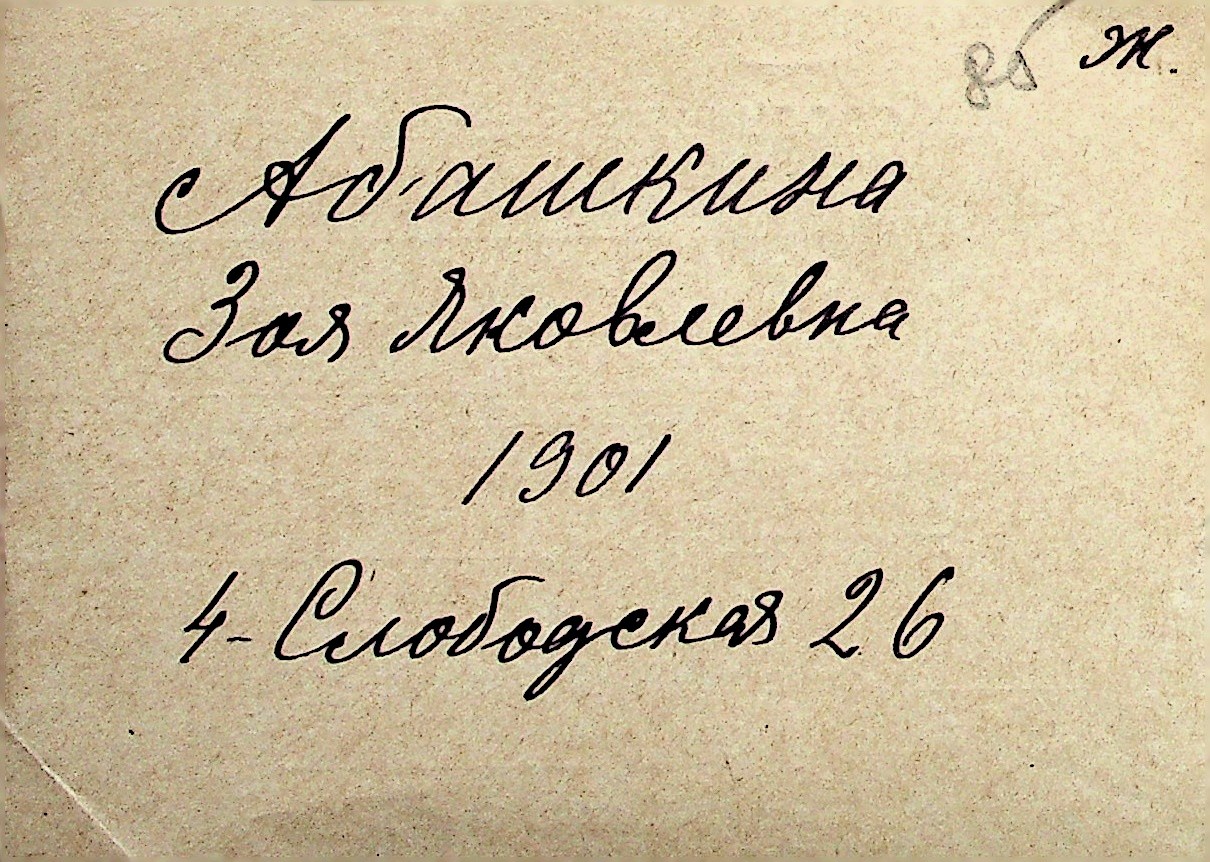 ж.
Абашкина
Зоя Яковлевна
1901
4-Слободская 26